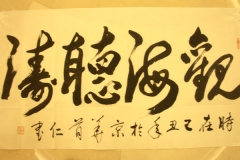 觀海聽濤
時在己丑年於京華首仁書